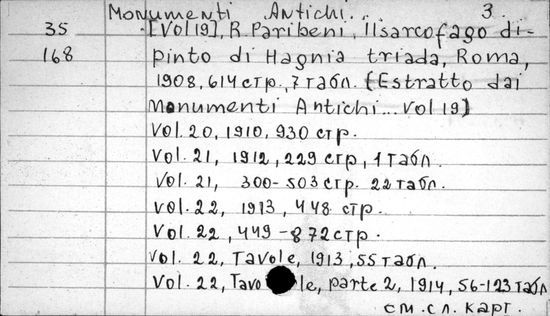 Monumenti Antichi... 3.
35 [Vol 19], R. Paribeni, Ilsarcofago di-
168 pinto di Hagnia triada, Roma,
1908, 614 стр., 7 табл. (Estratto dai
Monumenti Antichi... Vol 19)
Vol. 20, 1910, 930 стр.
Vol. 21, 1912, 229 стр, 1 табл.
Vol. 21, 300-503 стр. 22 табл.
Vol. 22, 1913, 448 стр.
Vol. 22, 449-872 стр.
Vol. 22, Tavole, 1913, 55 табл.
Vol. 22, Tavole, parte 2, 1914, 56-123 табл
см. сл. карт.